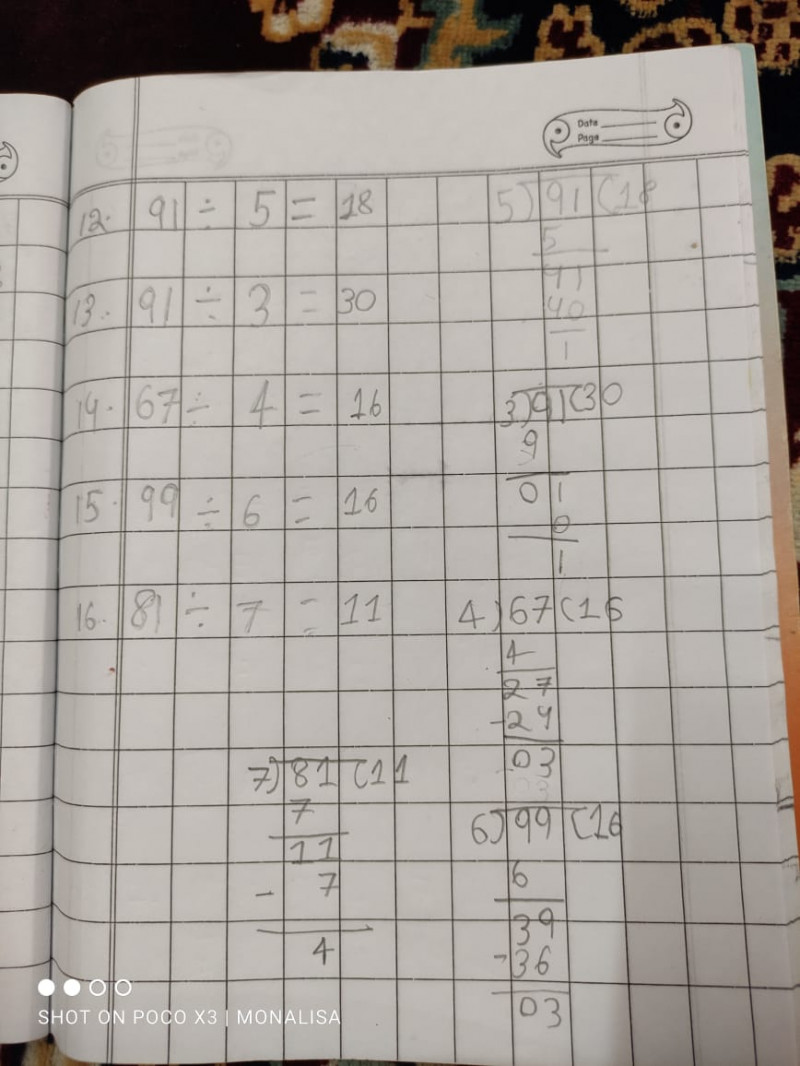 Date
Page
12. 91 ÷ 5 = 18
13. 91 ÷ 3 = 30
14. 67 ÷ 4 = 16
15. 99 ÷ 6 = 16
16. 81 ÷ 7 = 11
5)91(18
5
41
40
1
3)91(30
9
01
0
1
4)67(16
4
27
-24
03
6)99(16
6
39
-36
03
7)81(11
7
11
- 7
4
SHOT ON POCO X3 | MONALISA